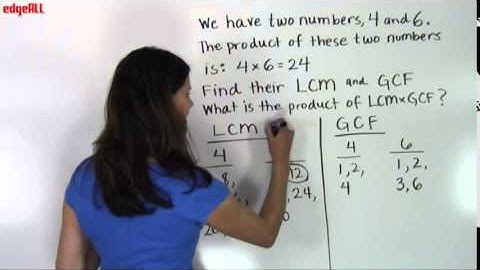 edgeALL
We have two numbers, 4 and 6.
The product of these two numbers
is: 4×6=24
Find their LCM and GCF
What is the product of LCM×GCF?
LCM
GCF
4
4
6
8,
12
1, 2,
1, 2,
24,
4
3, 6